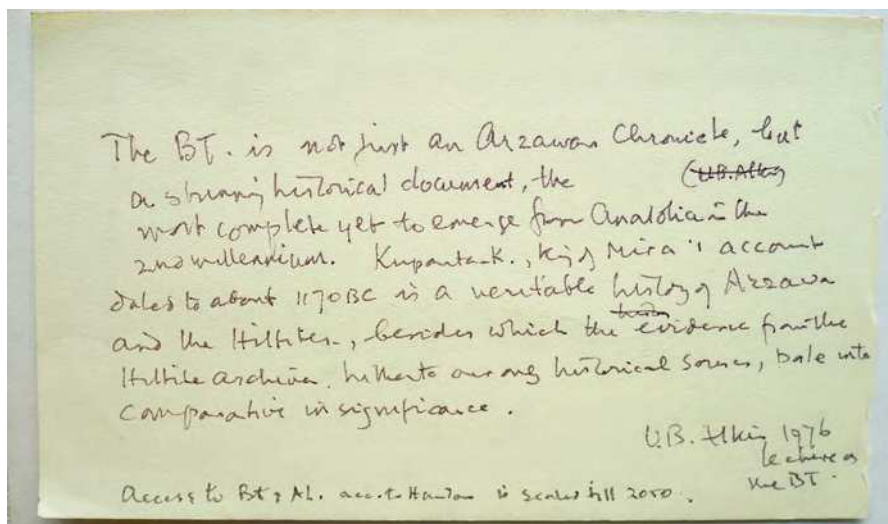 The BT. is not just an Arzawan Chronicle, but
a stunning historical document, the (U.B. Alkım
most complete yet to emerge from Anatolia in the
2nd millennium. Kupanta-K., King of Mira's account
dates to about 1170 BC is a veritable history of Arzawa
and the Hittites, besides which the evidence from the
Hittite archives, hitherto our only historical sources, pale into
comparative insignificance.
U.B. Alkım 1976
lecture on
the BT.
Access to BT & AL. acc. to Handan is sealed till 2050.